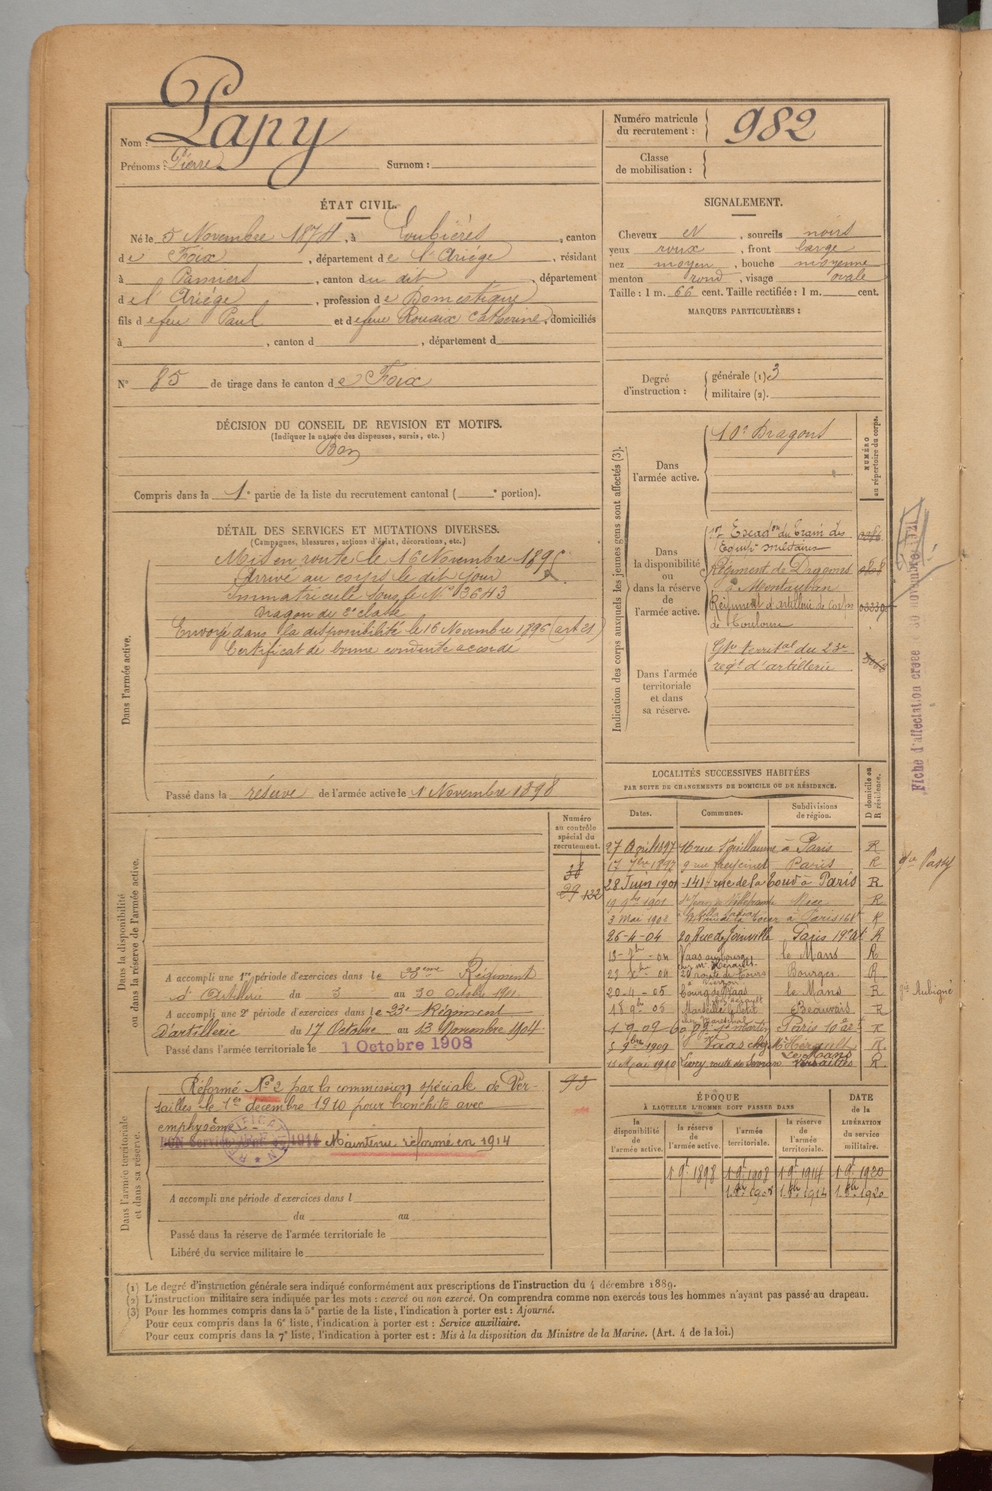 Nom : Papy
Prénoms : Pierre Surnom :
Numéro matricule du recrutement : 982
Classe de mobilisation :
ÉTAT CIVIL.
Né le 5 Novembre 1874, à Loubières, canton
de Foix, département de l'Ariège, résidant
à Pamiers, canton du dit, département
de l'Ariège, profession de Domestique
fils de feu Paul et de feue Rouaix Catherine, domiciliés
à , canton d , département d
N° 85 de tirage dans le canton de Foix
SIGNALEMENT.
Cheveux et , sourcils noirs
yeux roux , front large
nez moyen , bouche moyenne
menton rond , visage ovale
Taille : 1 m. 66 cent. Taille rectifiée : 1 m. cent.
MARQUES PARTICULIÈRES :
Degré d'instruction : générale (1) 3
militaire (2).
DÉCISION DU CONSEIL DE REVISION ET MOTIFS.
(Indiquer la nature des dispenses, sursis, etc.)
Bon
Compris dans la 1e partie de la liste du recrutement cantonal ( e portion).
DÉTAIL DES SERVICES ET MUTATIONS DIVERSES.
(Campagnes, blessures, actions d'éclat, décorations, etc.)
Dans l'armée active.
Mis en route le 16 Novembre 1895
Arrivé au corps le dit jour
Immatriculé sous le N° 3643
Dragon de 2e classe
Envoyé dans la disponibilité le 16 Novembre 1896 (art 21)
Certificat de bonne conduite accordé
Passé dans la réserve de l'armée active le 1 Novembre 1898
Indication des corps auxquels les jeunes gens sont affectés (3).
NUMÉRO au répertoire du corps.
Dans l'armée active.
10e Dragons
Dans la disponibilité ou dans la réserve de l'armée active.
1er Escadon du Train des
Equip. militaires
Régiment de Dragons
à Montauban
Régiment d'artillerie de
de Toulouse
Dans l'armée territoriale et dans sa réserve.
Gpe territal du 23e
regt d'artillerie
Fiche d'affectation
Dans la disponibilité ou dans la réserve de l'armée active.
Numéro au contrôle spécial du recrutement.
132
A accompli une 1re période d'exercices dans le 23ème Régiment
d'Artillerie du 3 au 30 Octobre 1901.
A accompli une 2e période d'exercices dans le 23e Régiment
d'artillerie du 17 Octobre au 13 Novembre 1904.
Passé dans l'armée territoriale le 1 Octobre 1908
LOCALITÉS SUCCESSIVES HABITÉES
PAR SUITE DE CHANGEMENTS DE DOMICILE OU DE RÉSIDENCE.
Dates. Communes. Subdivisions de région. D domicile ou R résidence.
27 Avril 1897 16 rue St Guillaume à Paris R
Paris R
28 Juin 1901 141 rue de la à Paris R
Nice R
3 Mai 1902 à Paris 16e R
26-4-04 20 Rue de Joinville Paris 19e Art R
le Mans R
Bourges R
20-4-05 le Mans R
Beauvais R
Paris 10e R
Vaas R
11 Mai 1910 Versailles R
Dans l'armée territoriale et dans sa réserve.
Réformé N° 2 par la commission spéciale de Ver-
sailles le 1er décembre 1910 pour bronchite avec
emphysème
Maintenu réformé en 1914
93
A accompli une période d'exercices dans l
du au
Passé dans la réserve de l'armée territoriale le
Libéré du service militaire le
ÉPOQUE
À LAQUELLE L'HOMME DOIT PASSER DANS
DATE de la LIBÉRATION du service militaire.
la disponibilité de l'armée active. la réserve de l'armée active. l'armée territoriale. la réserve de l'armée territoriale.
1 9e 1898 1 9e 1908 1 9e 1914 1 9e 1920
(1) Le degré d'instruction générale sera indiqué conformément aux prescriptions de l'instruction du 4 décembre 1889.
(2) L'instruction militaire sera indiquée par les mots : exercé ou non exercé. On comprendra comme non exercés tous les hommes n'ayant pas passé au drapeau.
(3) Pour les hommes compris dans la 5e partie de la liste, l'indication à porter est : Ajourné.
Pour ceux compris dans la 6e liste, l'indication à porter est : Service auxiliaire.
Pour ceux compris dans la 7e liste, l'indication à porter est : Mis à la disposition du Ministre de la Marine. (Art. 4 de la loi.)